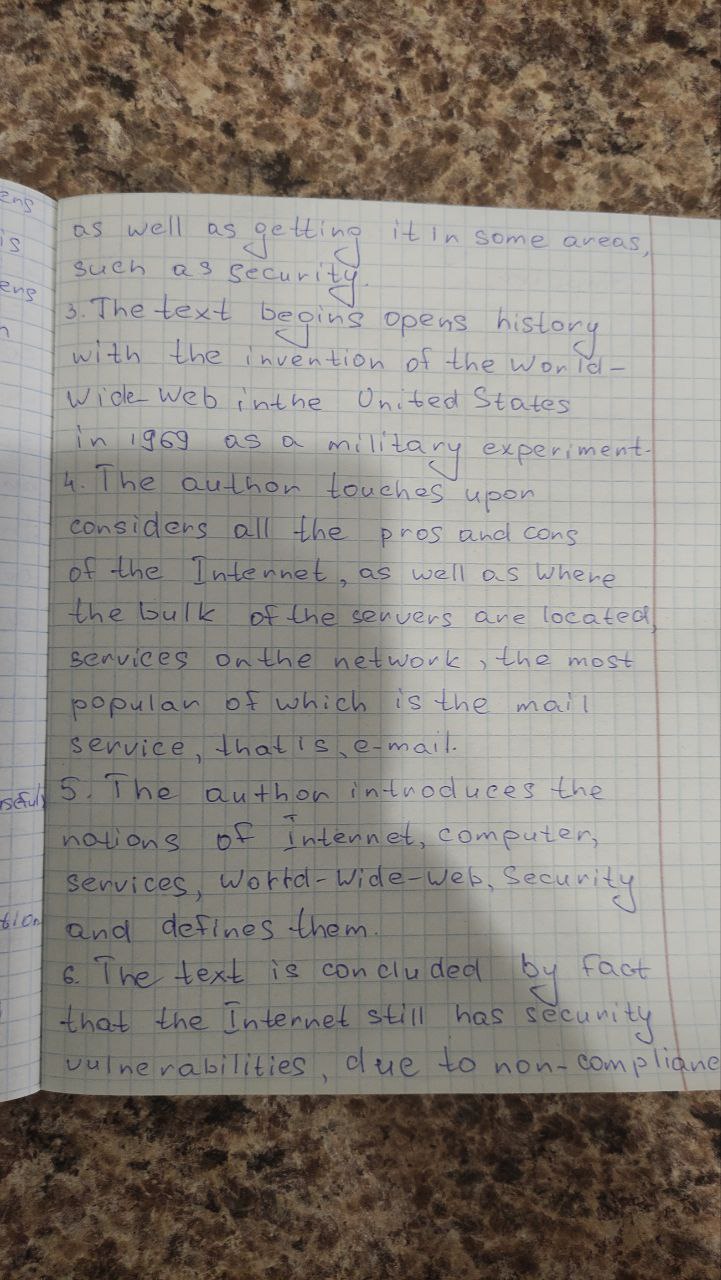 as well as getting it in some areas,
such as security.
3. The text begins opens history
with the invention of the World-
Wide-Web in the United States
in 1969 as a military experiment.
4. The author touches upon
considers all the pros and cons
of the Internet, as well as where
the bulk of the servers are located,
services on the network, the most
popular of which is the mail
service, that is, e-mail.
5. The author introduces the
notions of Internet, computer,
services, World-Wide-Web, Security
and defines them.
6. The text is concluded by fact
that the Internet still has security
vulnerabilities, due to non-compliane
ens
is
ens
n